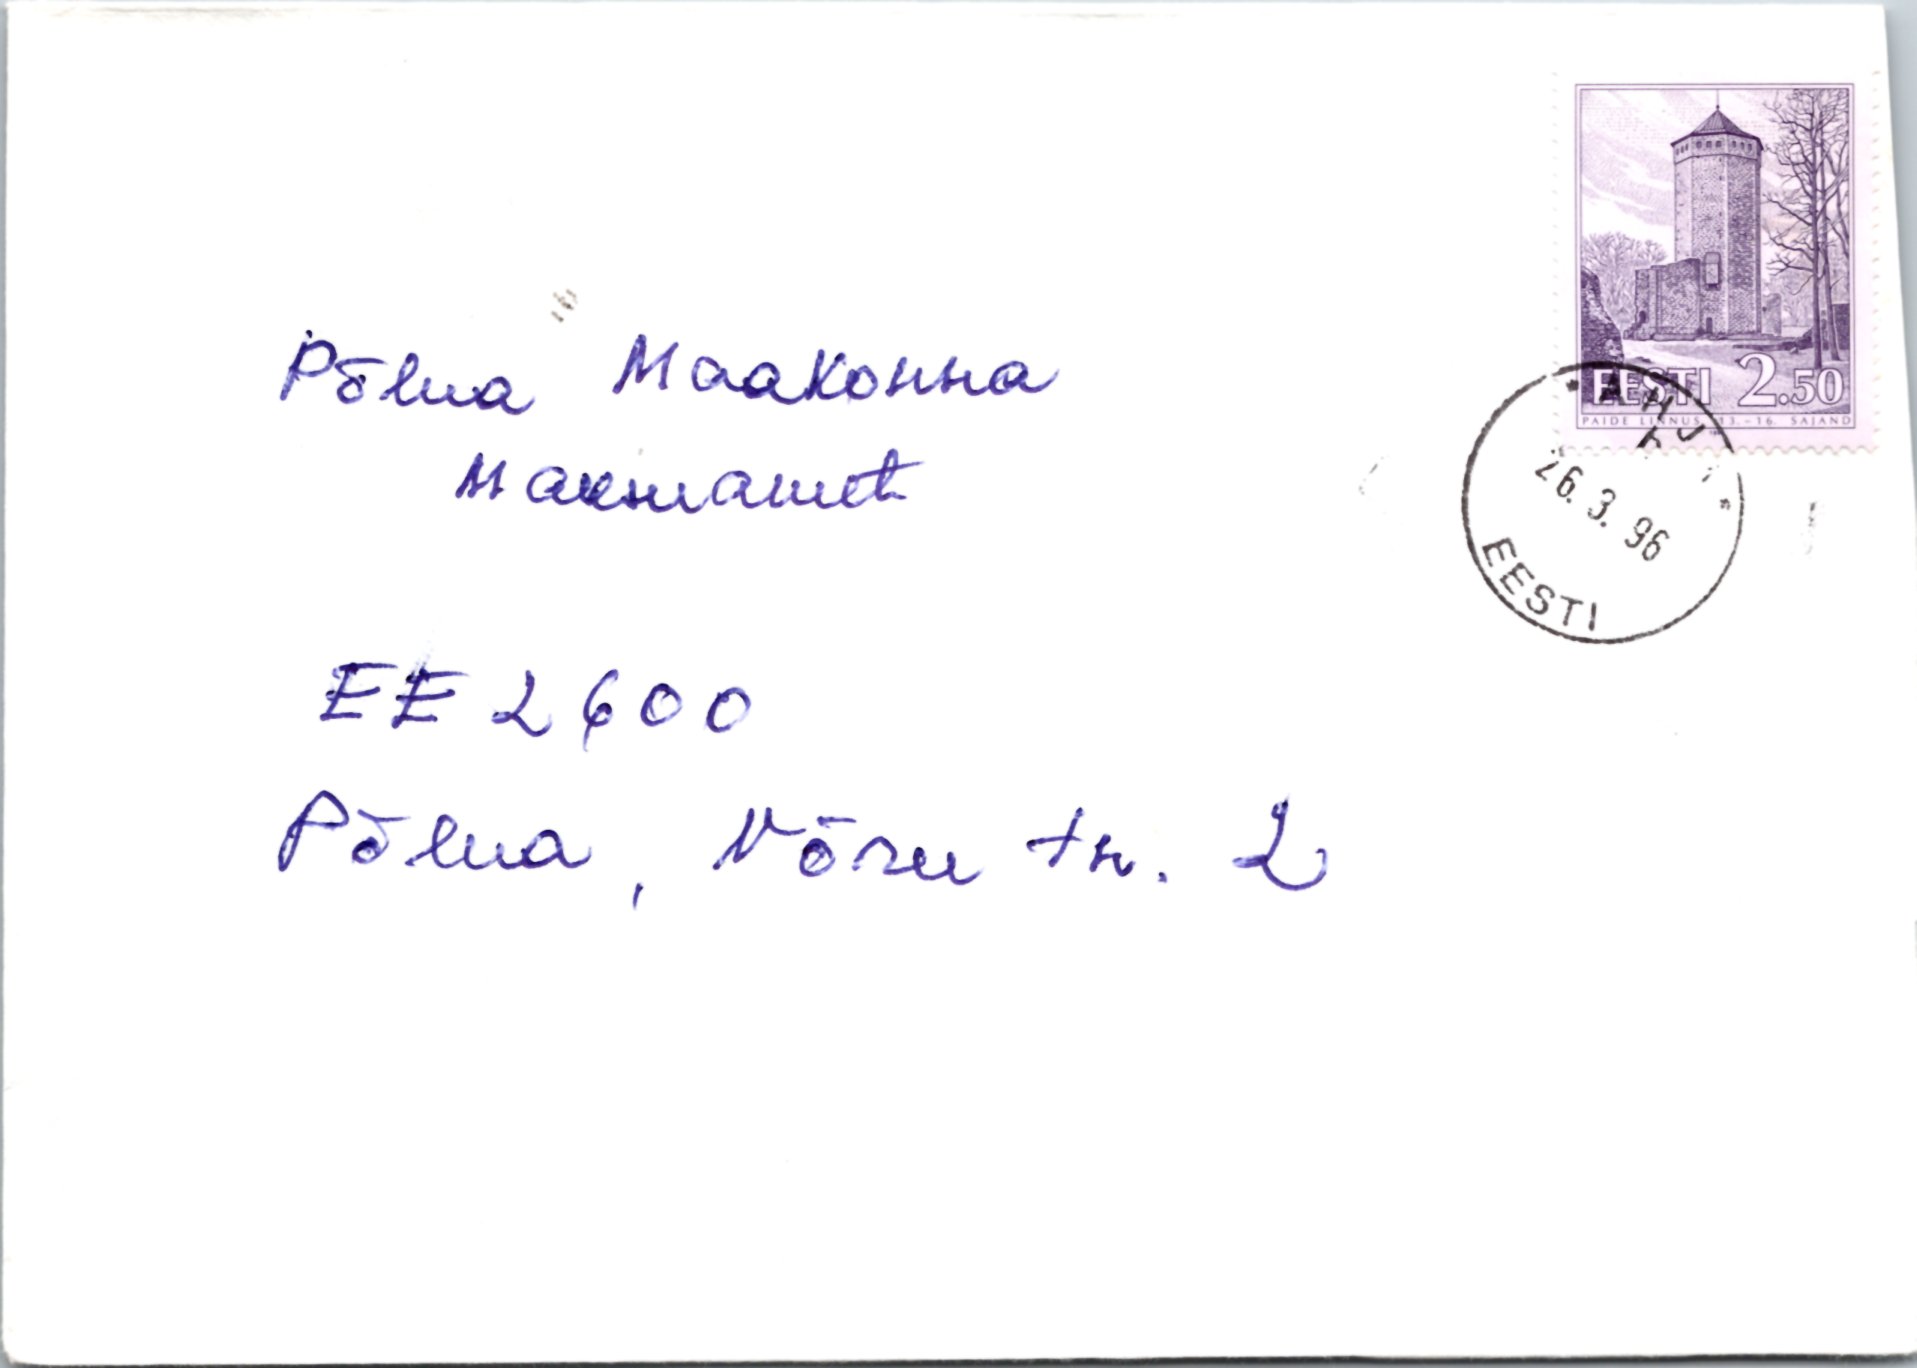 EESTI 2.50
PAIDE LINNUS 13.-16. SAJAND
AHJA
26.3.96
EESTI
Põlva Maakonna
Maksuamet
EE 2600
Põlva, Võru tn. 2